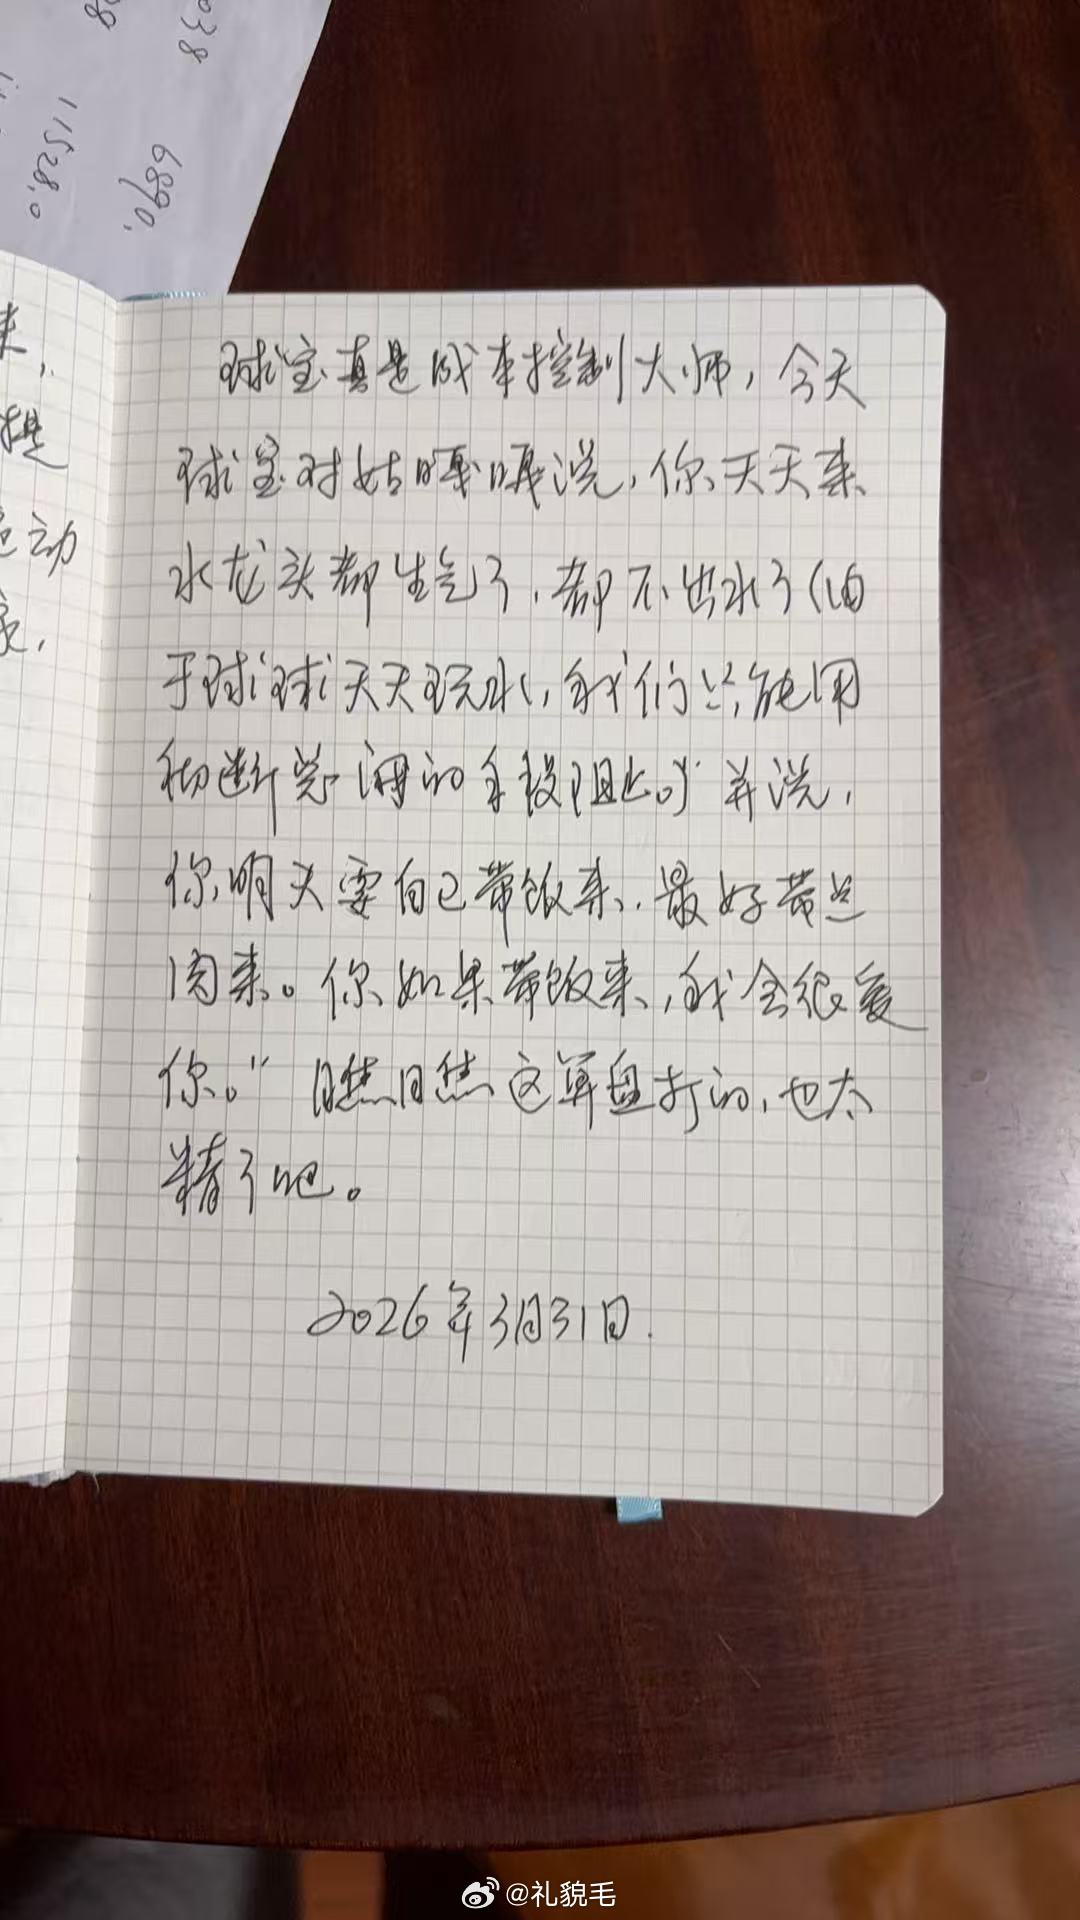 038
11528.0
6890.
来,
提
运动
球宝真是成本控制大师，今天
球宝对姑嘎嘎说，你天天来
水龙头都生气了，都不出水了（由
于球球天天玩水，我们只能用
切断总阀的手段阻止）并说，
你明天要自己带饭来，最好带点
肉来。你如果带饭来，我会很爱
你。” 瞧瞧这算盘打的，也太
精了吧。
2026年3月31日.
@礼貌毛